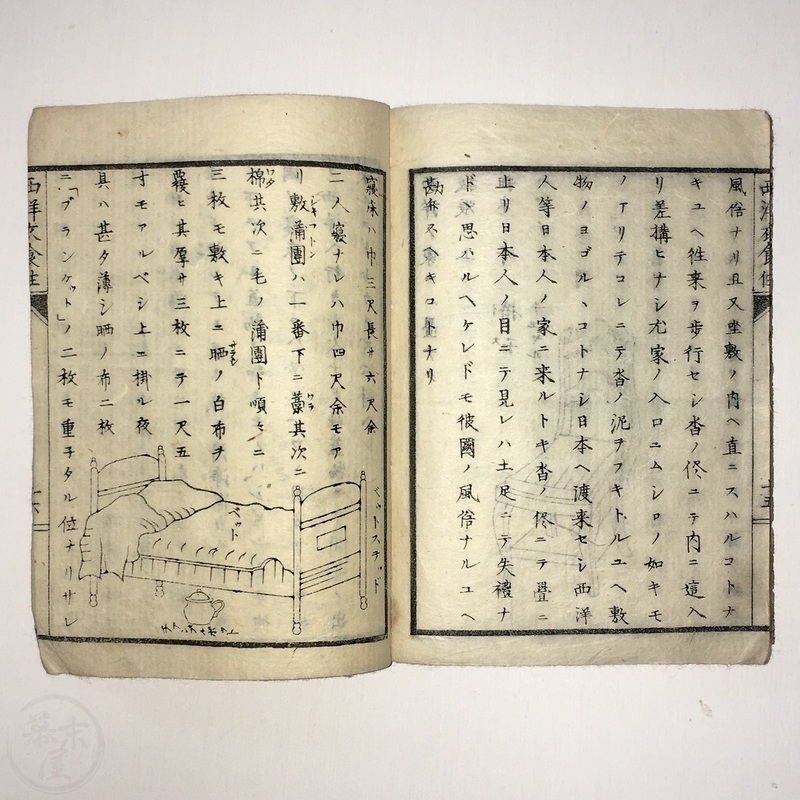 西洋衣食住
十五
風俗ナリ且又坐敷ノ内ヘ直ニスハルコトナ
キユヘ往来ヲ歩行セシ沓ノ侭ニテ内ニ這入
リ差搆ヒナシ尤家ノ入口ニムシロノ如キモ
ノアリテコレニテ沓ノ泥ヲフキトルユヘ敷
物ノヨゴルヽコトナシ日本ヘ渡来セシ西洋
人等日本人ノ家ニ来ルトキ沓ノ侭ニテ畳ニ
上リ日本人ノ目ニテ見レハ土足ニテ失禮ナ
ド思ハルヘケレドモ彼國ノ風俗ナルユヘ
勘弁スヘキコトナリ
寢床ハ巾三尺長サ六尺余
二人寢ナレハ巾四尺余モア
リ敷蒲團ハ一番下ニ藁其次ニ
棉其次ニ毛ノ蒲團ト順々ニ
三枚モ敷キ上ニ晒ノ白布ヲ
覆ヒ其厚サ三枚ニテ一尺五
寸モアルベシ上ニ掛ル夜
具ハ甚タ薄シ晒ノ布二枚
ニ「ブランケット」ノ二枚モ重子タル位ナリサレ
ベットステッド
ベッド
西洋衣食住
十六
幕末屋